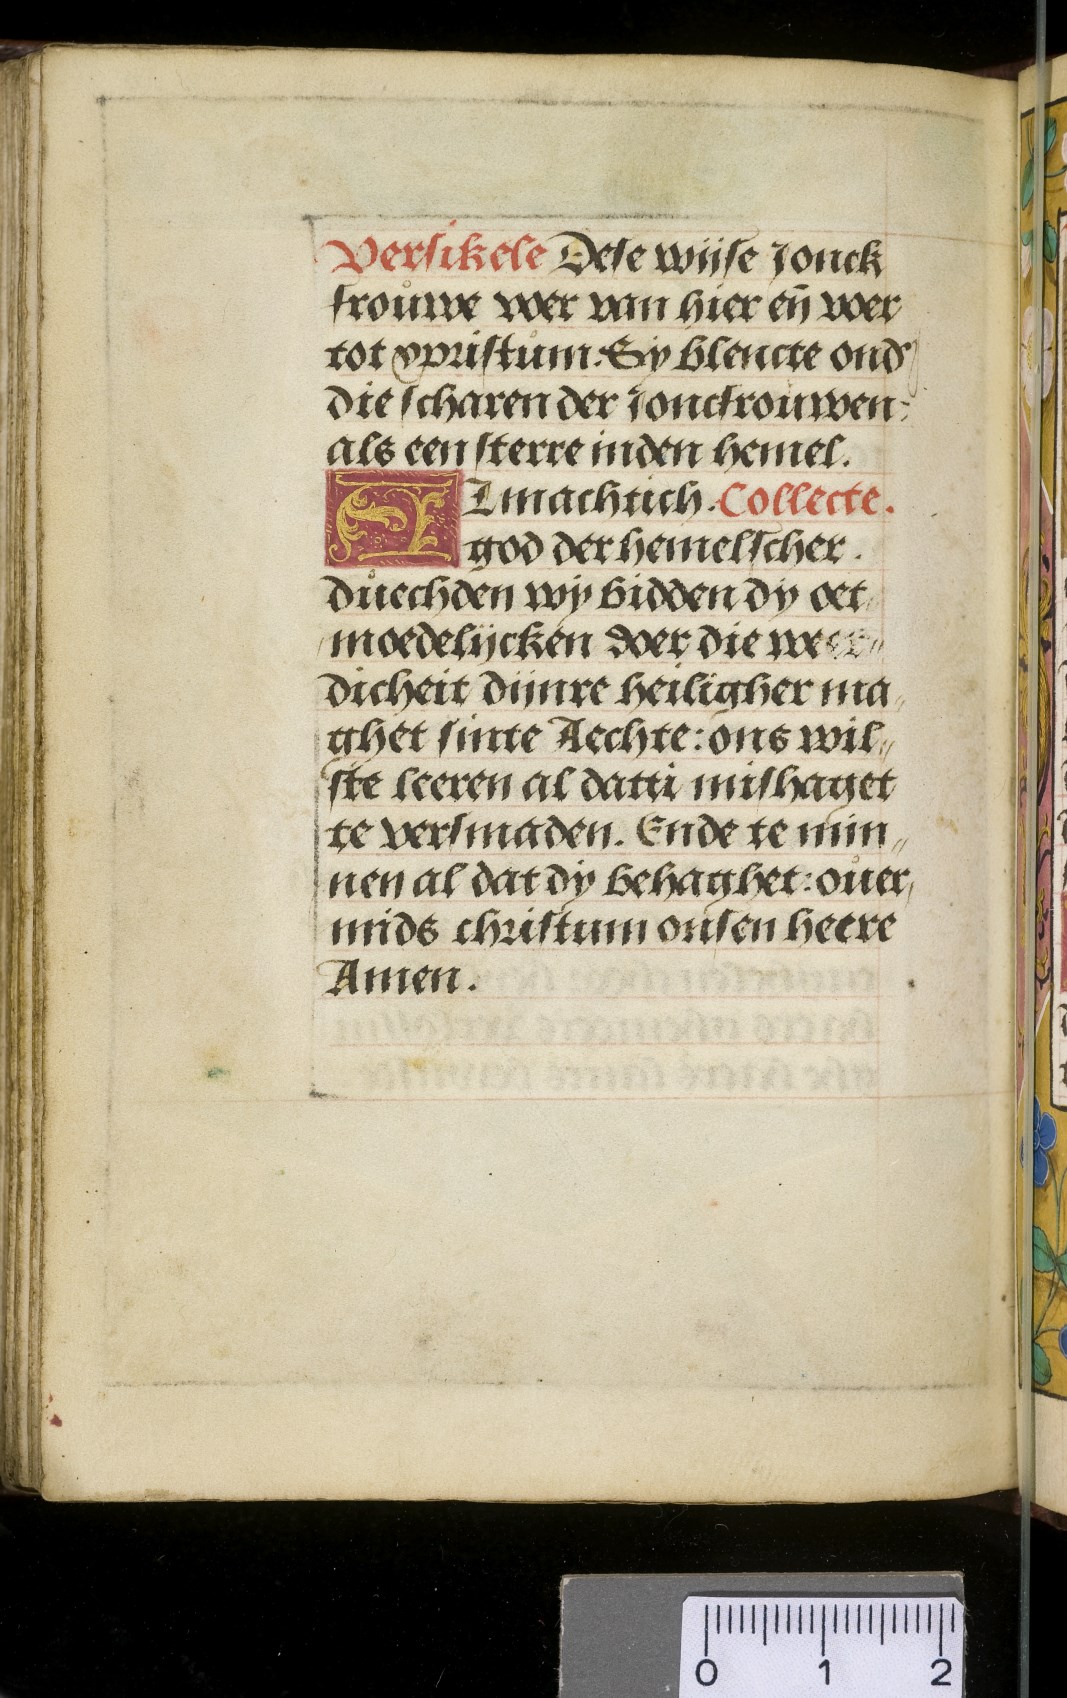 Versikele Dese wijse Jonck
frouwe wer van hier en̄ wer
tot xpristum: Sy blencte ond'
die scharen der Joncfrouwen:
als een sterre inden hemel.
ALmachtich. Collecte.
god der hemelscher.
duechden wy bidden dy oet
moedelijcken doer die weer
dicheit dijnre heiligher ma
ghet sinte Aechte: ons wil
ste leeren al datti mishaget
te versmaden. Ende te min
nen al dat dy behaghet: ouer
mids christum onsen heere
Amen.
0 1 2